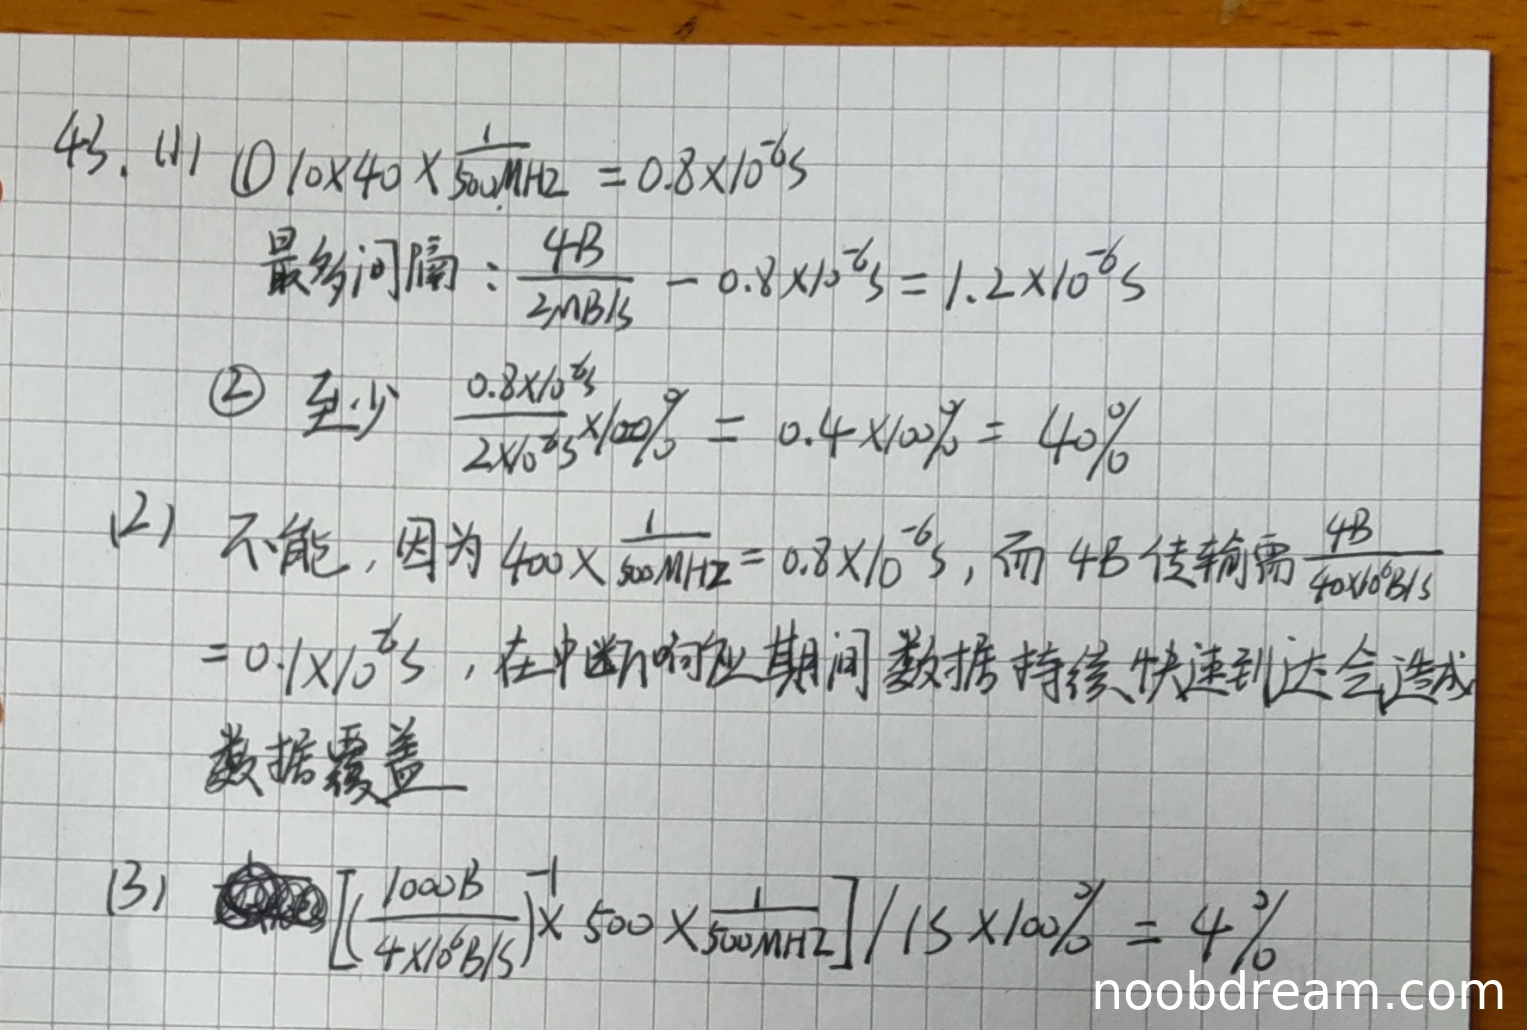 43. (1) ① 10×40×1/500MHZ = 0.8×10⁻⁶s
最多间隔: 4B/2MB/s - 0.8×10⁻⁶s = 1.2×10⁻⁶s
② 至少 0.8×10⁻⁶s/2×10⁻⁶s ×100% = 0.4×100% = 40%
(2) 不能, 因为 400×1/500MHZ = 0.8×10⁻⁶s, 而 4B 传输需 4B/40×10⁶B/s
= 0.1×10⁻⁶s, 在中断响应期间数据持续快速到达会造成
数据覆盖
(3) [(1000B/4×10⁶B/s)⁻¹ × 500 × 1/500MHZ] / 1s ×100% = 4%
noobdream.com